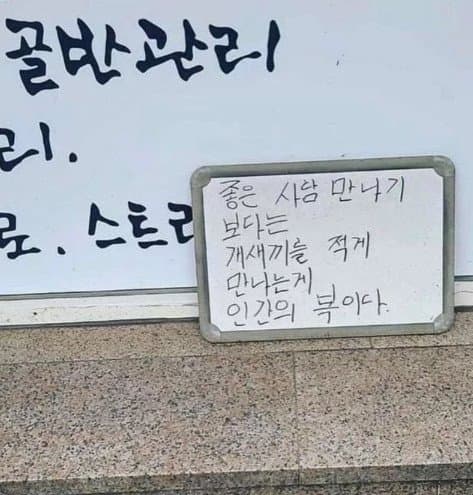 골반관리
리.
로. 스트레
좋은 사람 만나기
보다는
개새끼를 적게
만나는게
인간의 복이다.